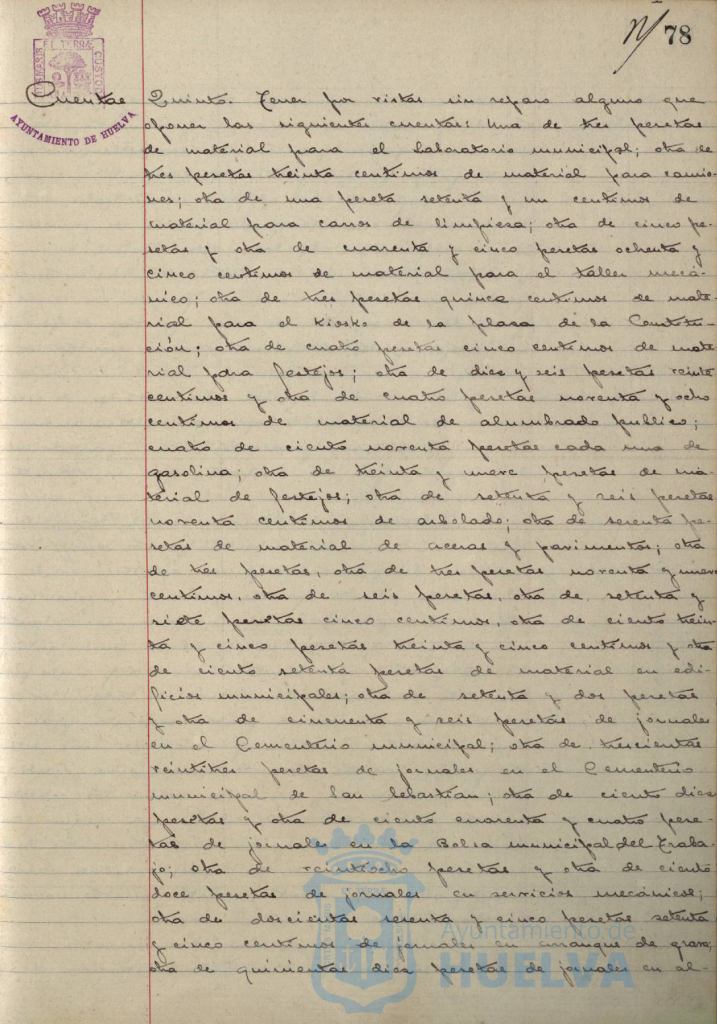 78
Cuentas
AYUNTAMIENTO DE HUELVA
Quinto. Tener por vistas sin reparo alguno que
oponer las siguientes cuentas: una de tres pesetas
de material para el Laboratorio municipal; otra de
tres pesetas treinta centimos de material para camio-
nes; otra de una peseta setenta y un centimos de
material para carros de limpieza; otra de cinco pe-
setas y otra de cuarenta y cinco pesetas ochenta y
cinco centimos de material para el taller mecá-
nico; otra de tres pesetas quince centimos de mate-
rial para el Kiosko de la plaza de la Constitu-
ción; otra de cuatro pesetas cinco centimos de mate
rial para festejos; otra de diez y seis pesetas veinte
centimos y otra de cuatro pesetas noventa y ocho
centimos de material de alumbrado publico;
cuatro de ciento noventa pesetas cada una de
gasolina; otra de treinta y nueve pesetas de ma-
terial de festejos; otra de setenta y seis pesetas
noventa centimos de arbolado; otra de sesenta pe-
setas de material de aceras y pavimentos; otra
de tres pesetas, otra de tres pesetas noventa y nueve
centimos, otra de seis pesetas, otra de setenta y
siete pesetas cinco centimos, otra de ciento trein-
ta y cinco pesetas treinta y cinco centimos y otra
de ciento setenta pesetas de material en edi-
ficios municipales; otra de setenta y dos pesetas
y otra de cincuenta y seis pesetas de jornales
en el Cementerio municipal; otra de trescientas
veintitres pesetas de jornales en el Cementerio
municipal de San Sebastian; otra de ciento diez
pesetas y otra de ciento cuarenta y cuatro pese-
tas de jornales en la Bolsa municipal del Traba-
jo; otra de veintiocho pesetas y otra de ciento
doce pesetas de jornales en servicios mecánicos;
otra de doscientas sesenta y cinco pesetas setenta
y cinco centimos de jornales en arranque de grava;
otra de quinientas diez pesetas de jornales en al-
Ayuntamiento de
HUELVA